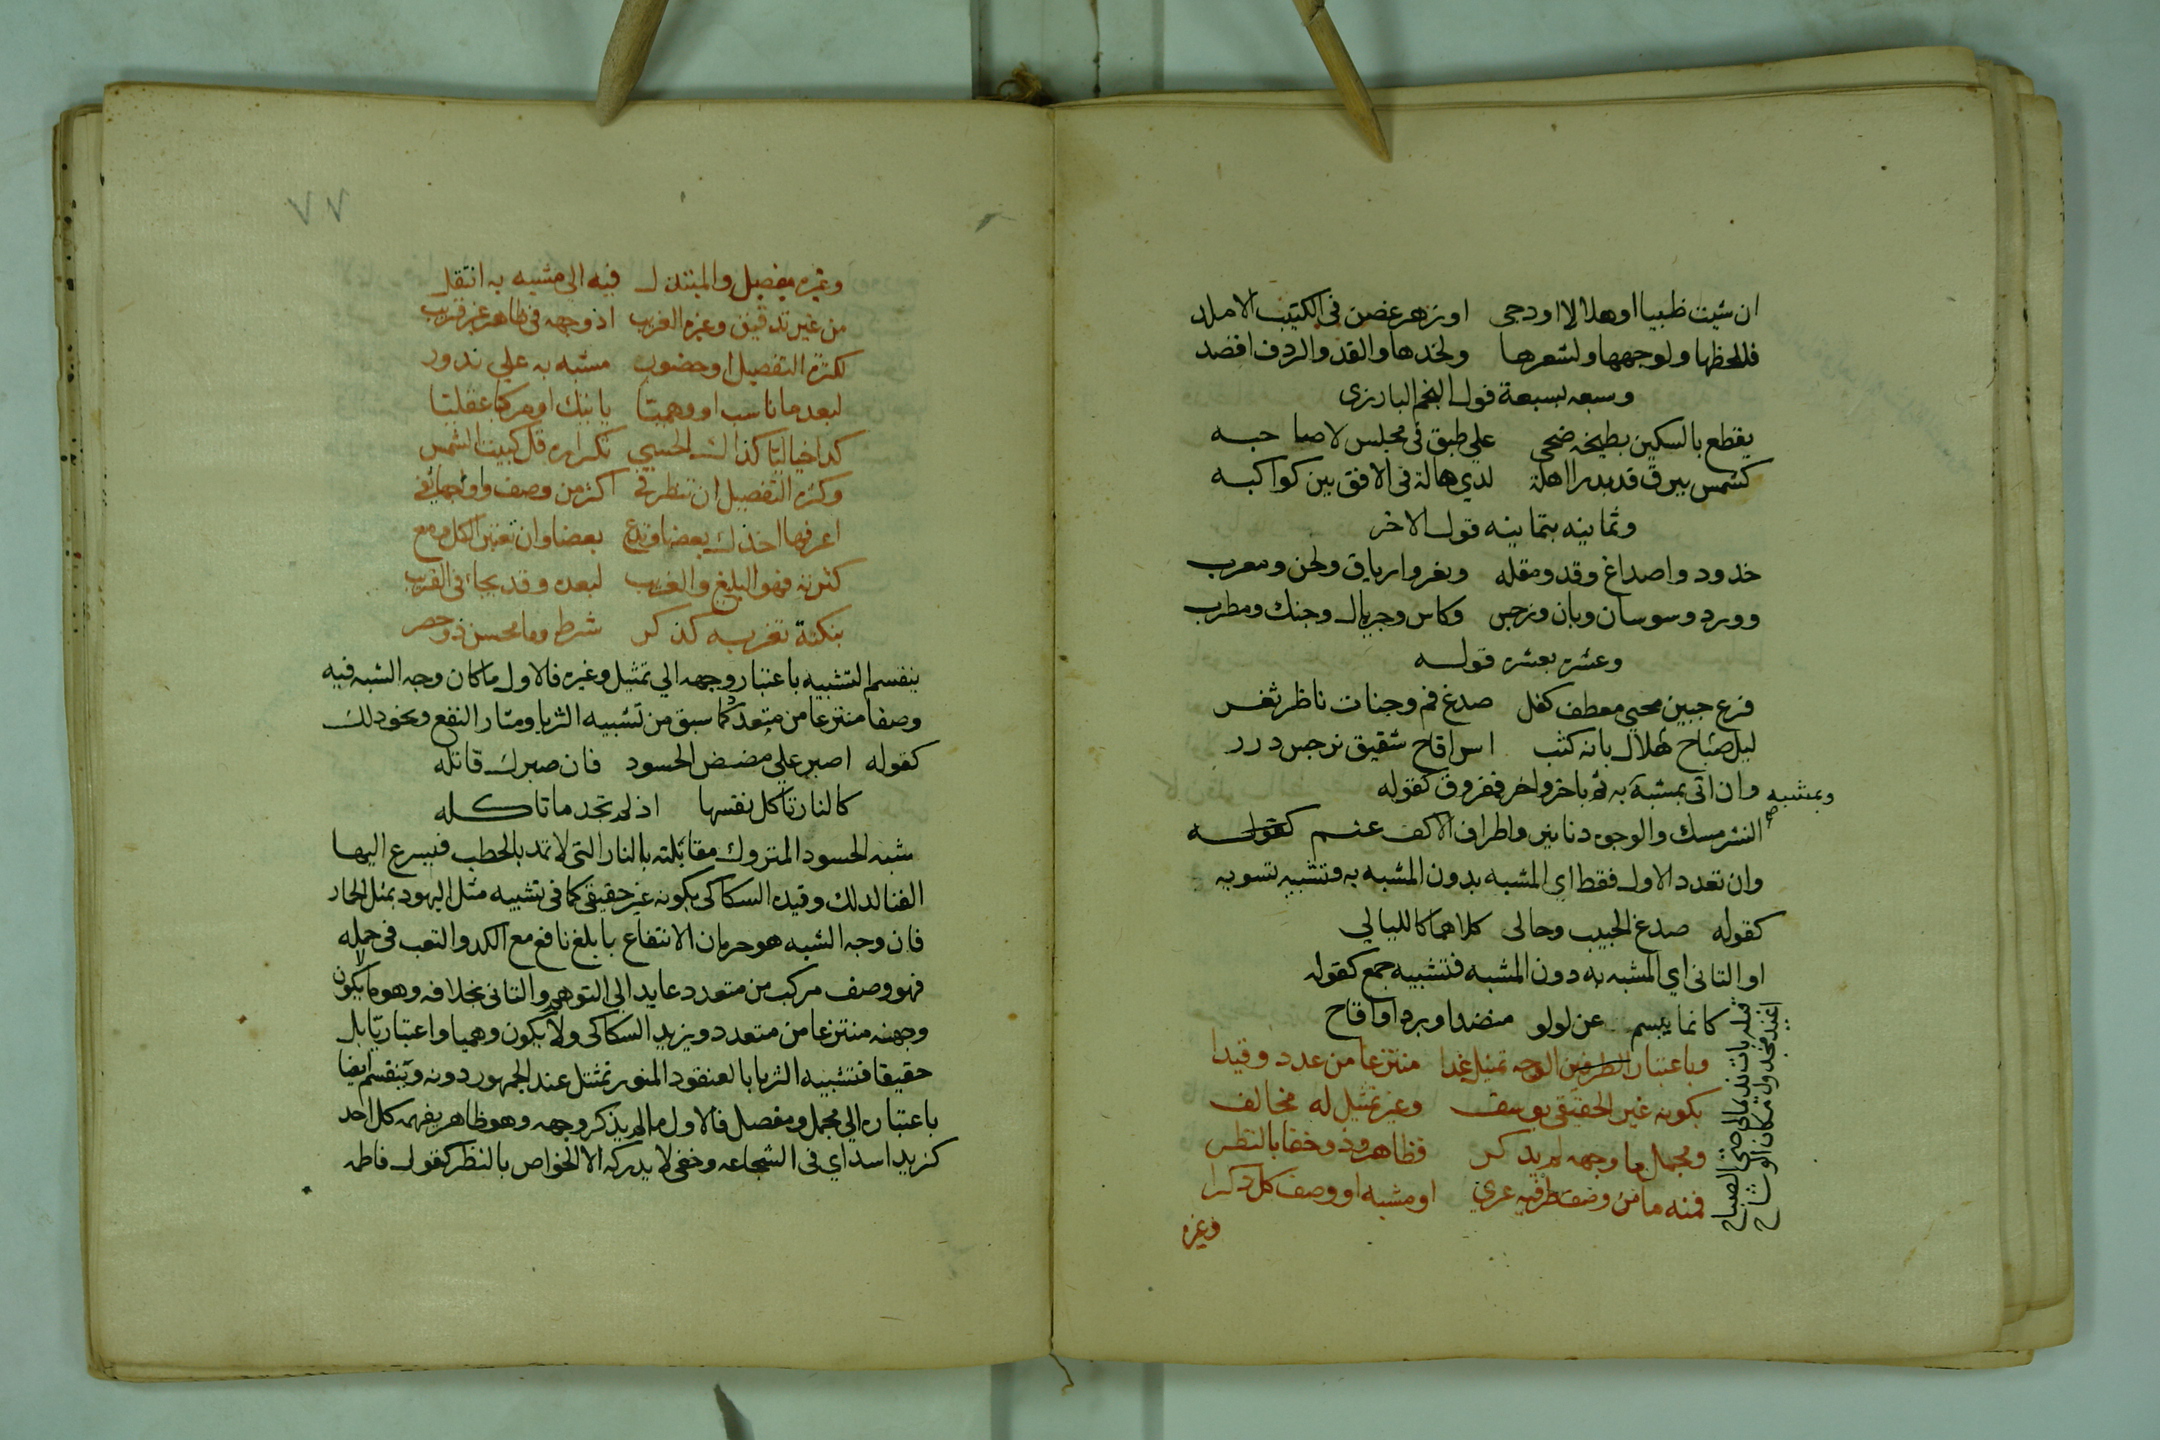 ان شيت ظبيا او هلالا او دجى او زهر غصن في الكثيب الاملد
فللحظها ولوجهها ولشعرها ولخدها والقد والردف اقصد
وسبعه بسبعة قول النجم البارزى
يقطع بالسكين بطيخه ضحى على طبق فى مجلس لاصاحبه
كشمس ببرق قد بدرا اهلة لدي هالة فى الافق بين كواكبه
وثمانيه بثمانيه قول الاخر
خدود واصداغ وقد ومقله وثغر وارياق ولحن ومعرب
وورد وسوسان وبان ونرجس وكاس وجريال وجنك ومطرب
وعشره بعشره قوله
فرع جبين محيى معطف كفل صدغ فم وجنات ناظر ثغر
ليل صباح هلال بانه كثب اس اقاح شقيق نرجس درر
وان اتى بمشبه به ثم باخر واخر فمفروق كقوله
وبمشبه صح
النشر مسك والوجوه دنانير واطراف الاكف عنم كقوله
وان تعدد الاول فقط اي المشبه بدون المشبه به فتشبيه تسويه
كقوله صدغ الحبيب وحالى كلاهما كالليالي
او الثانى اي المشبه به دون المشبه فتشبيه جمع كقوله
كانما يبسم عن لولو منضد او برد او اقاح
قبله بات نديما لى حتى الصباح
اغيد مجدول مكان الوشاح
وباعتبار الطرفين الوجه تمثيل غدا منتزعا من عدد وقيدا
بكونه غير الحقيقي يوسف وغير تمثيل له مخالف
ومجمل ما وجهه لم يذكر فظاهر وذو خفا بالنظر
فمنه ما من وصف طرفيه عري او مشبه او وصف كل ذكرا
وغيره
٧٧
وغيره مفصل والمبتذل فيه الى مشبه به انتقل
من غير تدقيق وغيره الغريب اذ وجهه فى ظاهر غير قريب
لكثرة التفصيل او حضور مشبه به علي ندور
لبعد ما ناسب او وهميا يانيك او مركبا عقليا
كذا خياليا كذاك الحسي تكراره قل كبيت الشمس
وكثرة التفصيل ان تنظر في اكثر من وصف واوجها يفي
اعرفها اخذك بعضا وتدع بعضا وان تعتبر الكل ومع
كثرته فهو البليغ والغريب لبعده وقد يجا فى القريب
بنكتة تغربه كذكر شرط وما محسن ذو حصر
ينقسم التشبيه باعتبار وجهه الي تمثيل وغيره فالاول ما كان وجه الشبه فيه
وصفا منتزعا من متعدد كما سبق من تشبيه الثريا ومثار النقع ونحو ذلك
كقوله اصبر علي مضض الحسود فان صبرك قاتله
كالنار تاكل نفسها اذ لم تجد ما تاكله
شبه الحسود المتروك مقابلته بالنار التى لا تمد بالحطب فيسرع اليها
الفنا لذلك وقيده السكاكى بكونه غير حقيقي كما فى تشبيه مثل اليهود بمثل الحمار
فان وجه الشبه هو حرمان الانتفاع بابلغ نافع مع الكد والتعب فى حمله
فهو وصف مركب من متعدد عايد الي التوهم والثانى بخلافه وهو ما لا يكون
وجهه منتزعا من متعدد ويزيد السكاكى ولا يكون وهميا واعتباريا بل
حقيقا فتشبيه الثريا بالعنقود المنور تمثيل عند الجمهور دونه وينقسم ايضا
باعتباره الي مجمل ومفصل فالاول ما لم يذكر وجهه وهو ظاهر يفهمه كل احد
كزيد اسد اي فى الشجاعه وخفى لا يدركه الا الخواص بالنظر كقول فاطمه